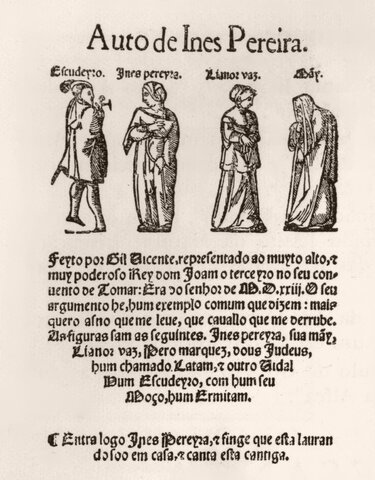 Auto de Ines Pereira.
Escudeyro. Ines pereyra. Lianor vaz. Mãy.
Feyto por Gil Vicente, representado ao muyto alto, &
muy poderoso Rey dom Joam o terceyro no seu con-
uento de Tomar: Era do senhor de M.D.xxiij. O seu
argumento he, hum exemplo comum que dizem: mais
quero asno que me leue, que cauallo que me derrube.
As figuras sam as seguintes. Ines pereyra, sua mãy,
Lianor vaz, Pero marquez, dous Judeus,
hum chamado Latam, & outro Vidal
Hum Escudeyro, com hum seu
Moço, hum Ermitam.
¶ Entra logo Ines Pereyra, & finge que esta lauran
do soo em casa, & canta esta cantiga.